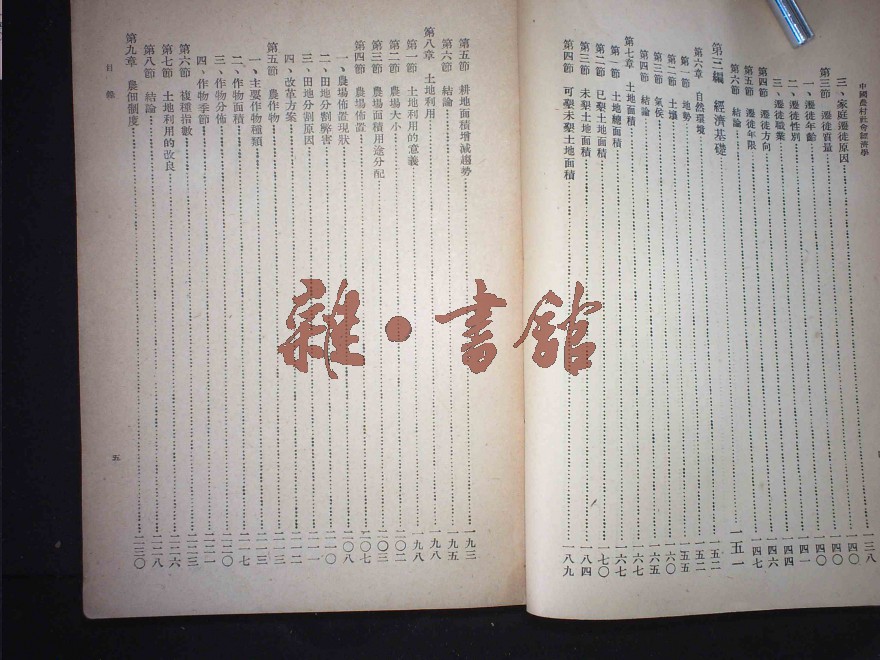 中國農村社會經濟學
三、家庭遷徙原因……一三八
第三節 遷徙質量……一四〇
一、遷徙年齡……一四〇
二、遷徙性別……一四一
三、遷徙職業……一四四
第四節 遷徙方向……一四四
第五節 遷徙年限……一四七
第六節 結論
第三編 經濟基礎……一五一
第六章 自然環境……一五二
第一節 地勢……一五二
第二節 土壤……一五五
第三節 氣侯……一六〇
第四節 結論……一六五
第七章 土地面積……一六七
第一節 土地總面積……一六七
第二節 已墾土地面積……一七〇
第三節 未墾土地面積……一八四
第四節 可墾未墾土地面積……一八九
第五節 耕地面積增減趨勢……一九三
第六節 結論……一九五
第八章 土地利用……一九八
第一節 土地利用的意義……一九八
第二節 農場大小……二〇二
第三節 農場面積用途分配……二〇三
第四節 農場佈置……二〇七
一、農場佈置現狀……二〇八
二、田地分割弊害……二一〇
三、田地分割原因……二一一
四、改革方案……二一二
第五節 農作物
一、主要作物種類……二一三
二、作物面積……二一七
三、作物分佈……二二〇
四、作物季節
第六節 複種指數……二二三
第七節 土地利用的改良……二二六
第八節 結論……二二八
第九章 農佃制度……二三〇
目錄
五
雜·書館